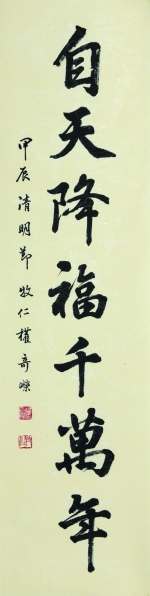 自天降福千萬年
甲辰清明節 牧仁權奇嶸